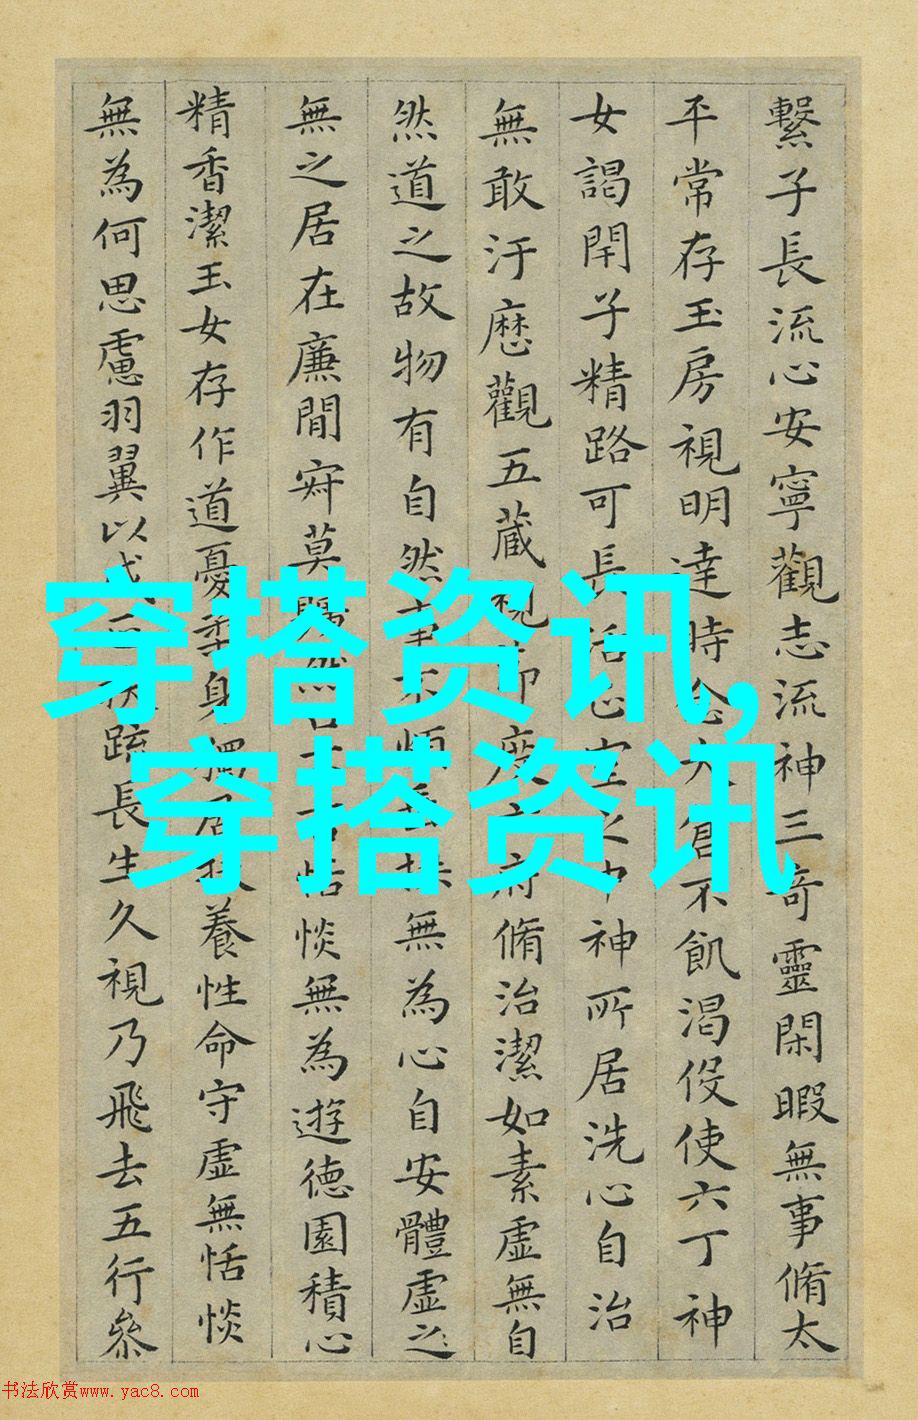 繫子長流心安寧觀志流神三奇靈閑暇無事脩太
平常存玉房視明達時念大倉不飢渴役使六丁神
女謁閇子精路可長活心空之中神所居洗心自治
無敢汙歷觀五藏視節度六府脩治潔如素虛無自
然道之故物有自然事不煩無為心自安體虛之
無之居在廉間寂莫然口不言恬惔無為遊德園積心
精香潔玉女存作道憂柔身獨居養性命守虛無恬惔
無為何思慮羽翼以成疏長生久視乃飛去五行參
穿搭资讯,
穿搭资讯
书法欣赏www.yac8.com